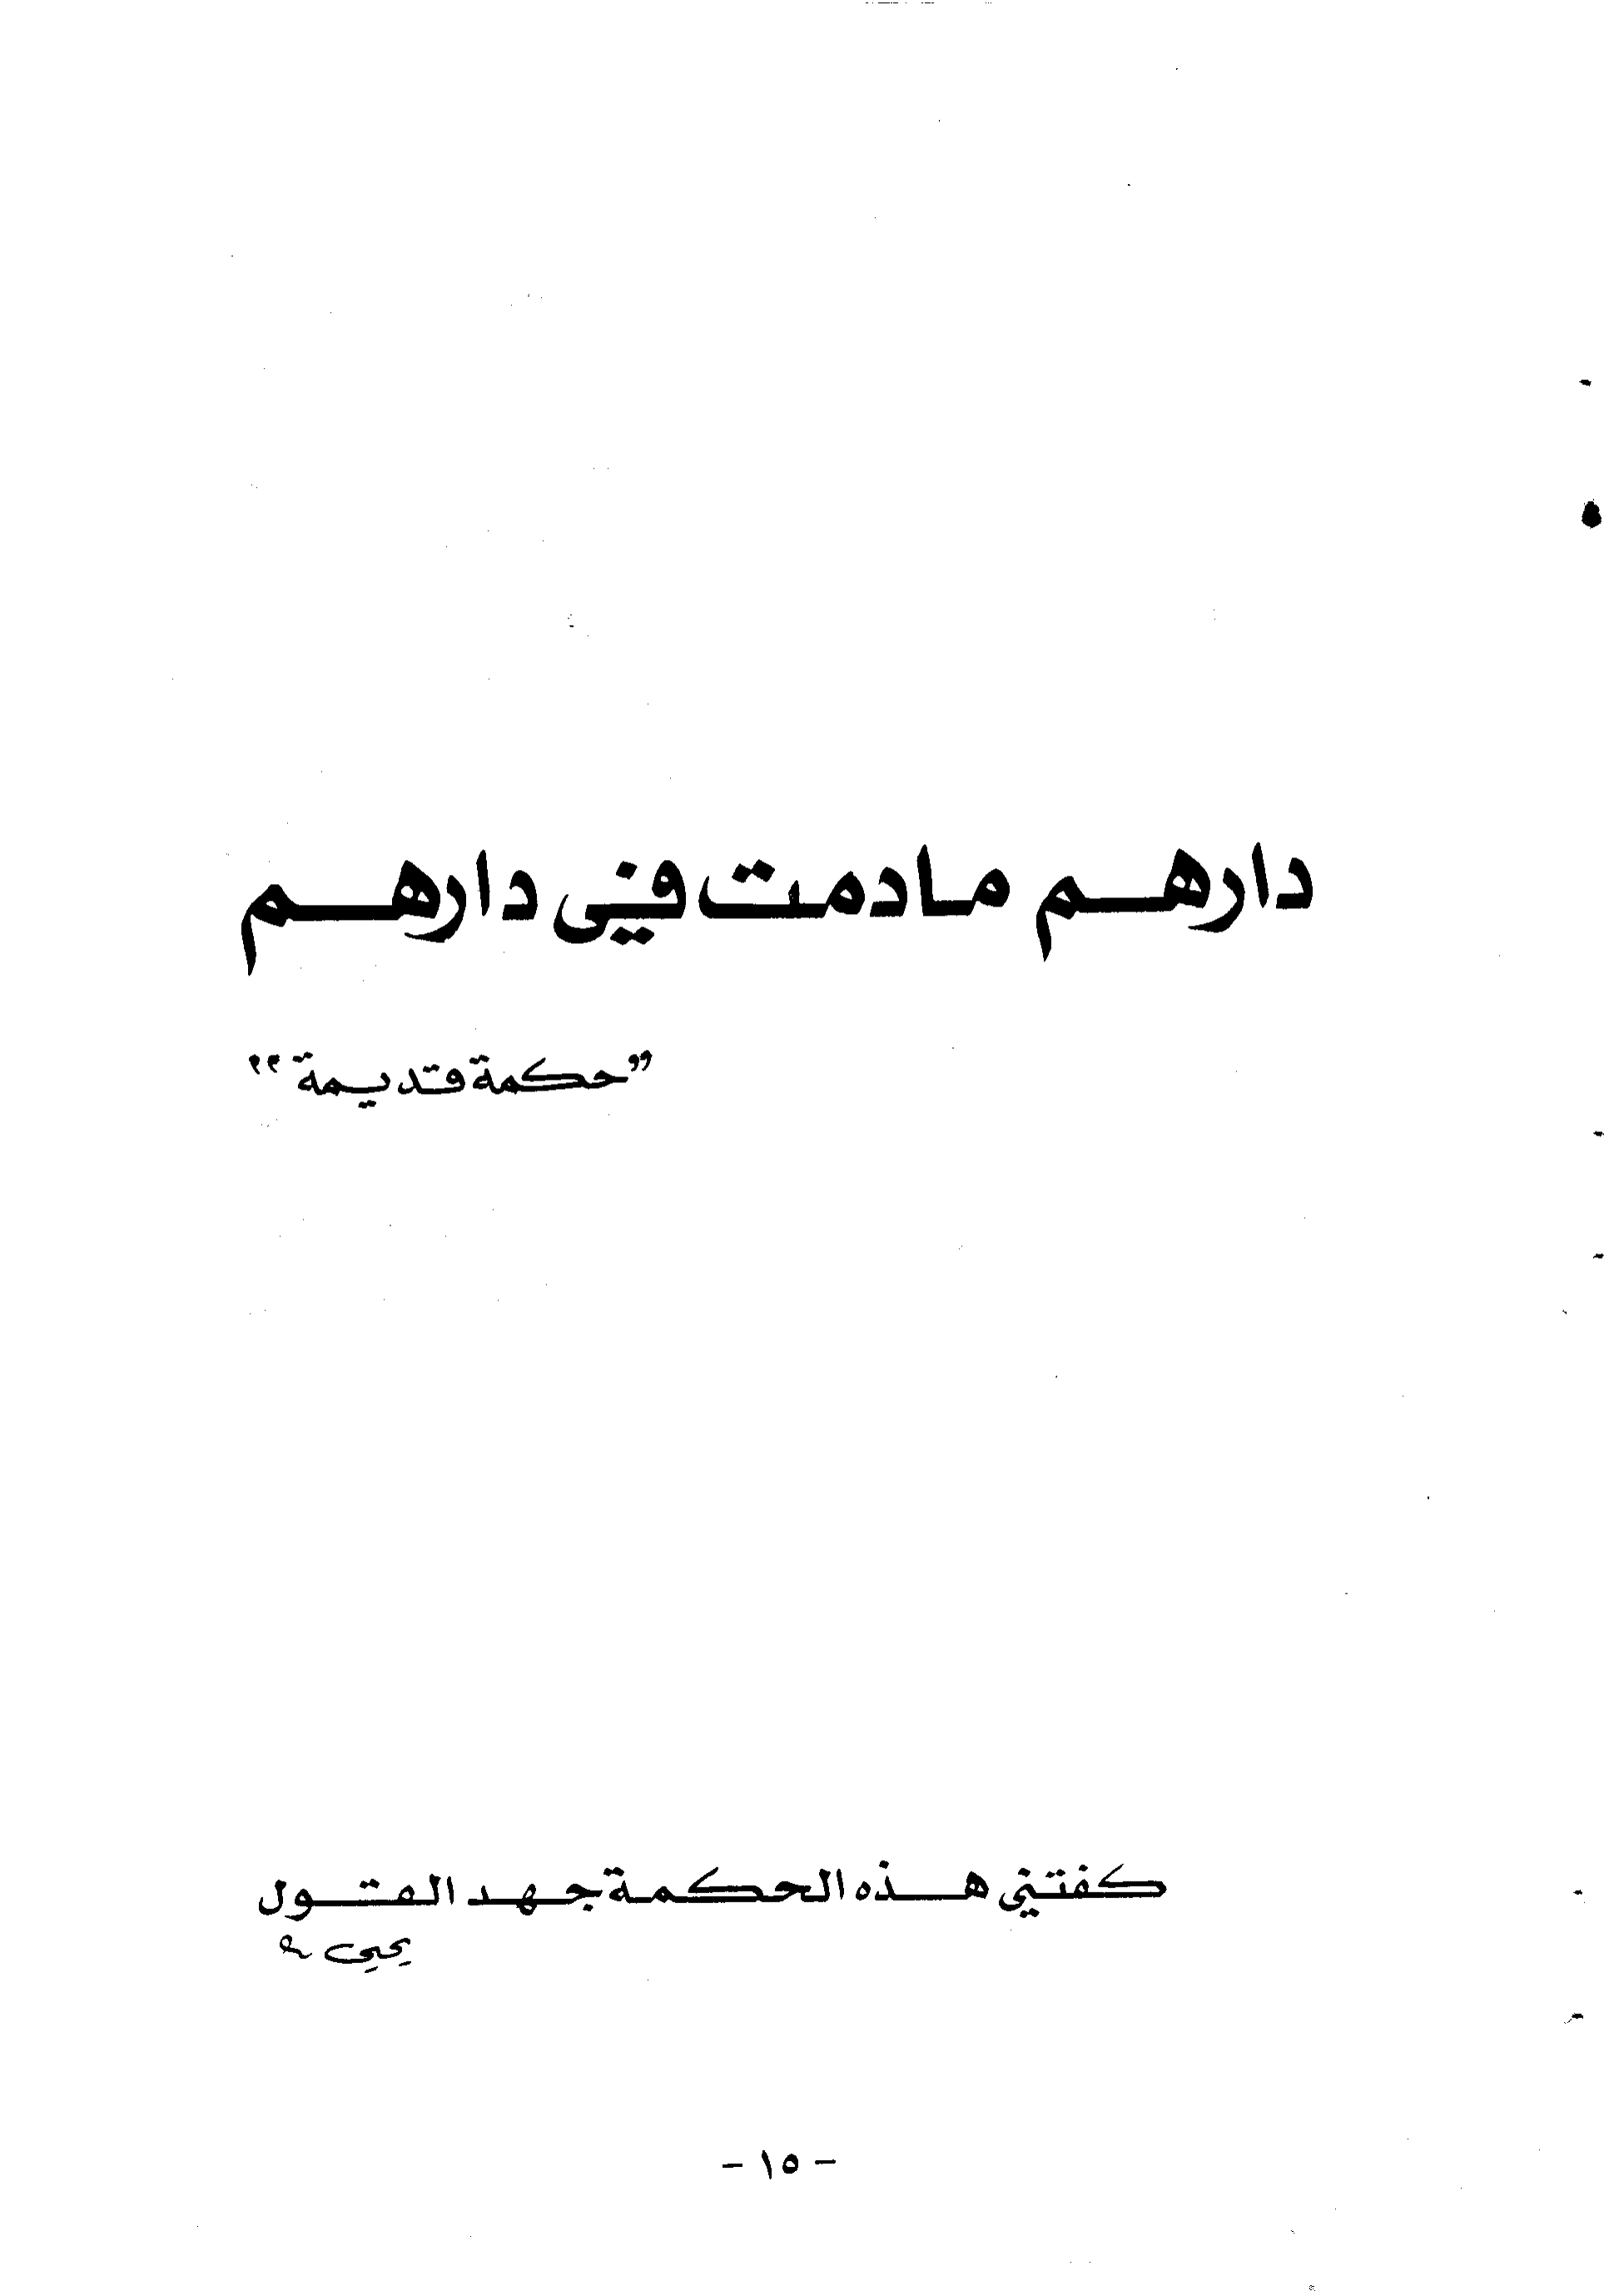 دارهم مادمت في دارهم
"حكمة قديمة"
كفتني هذه الحكمة جهد القول
يحيى
- ١٥ -